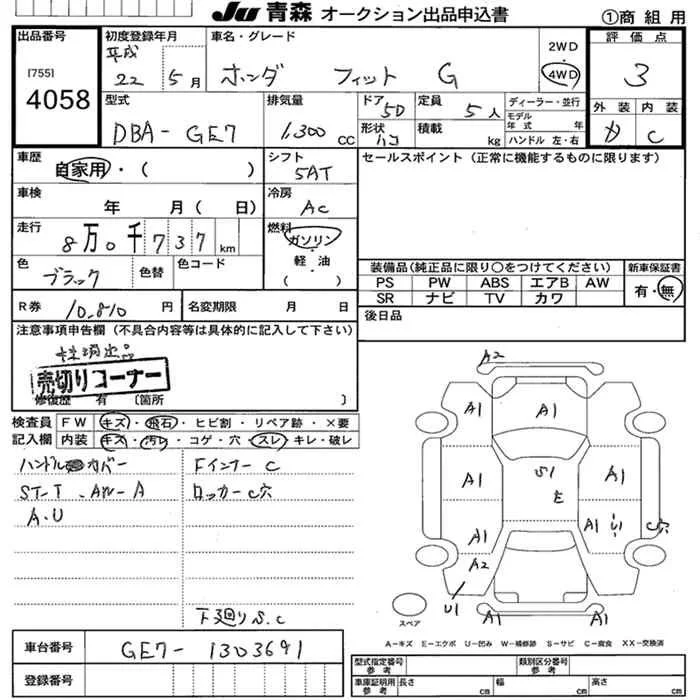 JU 青森 オークション出品申込書 ①商 組 用
出品番号
[755]
4058
初度登録年月
平成 22 5月
車名・グレード
ホンダ フィット G
2WD
・
4WD
評価点
3
型式
DBA-GE7
排気量
1,300 cc
ドア 5D
定員 5人
形状 ハコ
積載 kg
ディーラー・並行
モデル年式 年
ハンドル 左・右
外装 内装
C
車歴
自家用・( )
シフト
5AT
セールスポイント(正常に機能するものに限ります)
車検
年 月( 日)
冷房
AC
走行
8万0千737km
燃料
ガソリン
・
軽 油
( )
色
ブラック
色替
色コード
装備品(純正品に限り○をつけてください)
PS PW ABS エアB AW
SR ナビ TV カワ
新車保証書
有・無
R券 10,810円
名変期限 月 日
後日品
注意事項申告欄(不具合内容等は具体的に記入して下さい)
抹消出品
売切りコーナー
修復歴 有 〔箇所 〕
検査員
記入欄
FW キズ・飛石・ヒビ割・リペア跡・×要
内装 キズ・汚レ・コゲ・穴・スレ・キレ・破レ
ハンドル カバー
Fインナー C
ST-T . AW-A
ロッカー C穴
A.U
下廻り S.C
A2
A1
A1
A1
A1
S1
E
A1
A1
A1
U1
C穴
A2
U1
A1
A1
スペア
A-キズ E-エクボ U-凹み W-補修跡 S-サビ C-腐食 XX-交換済
車台番号
GE7-1303691
登録番号
型式指定番号
参考
類別区分番号
参考
車庫証明用
参考
長さ cm
幅 cm
高さ cm